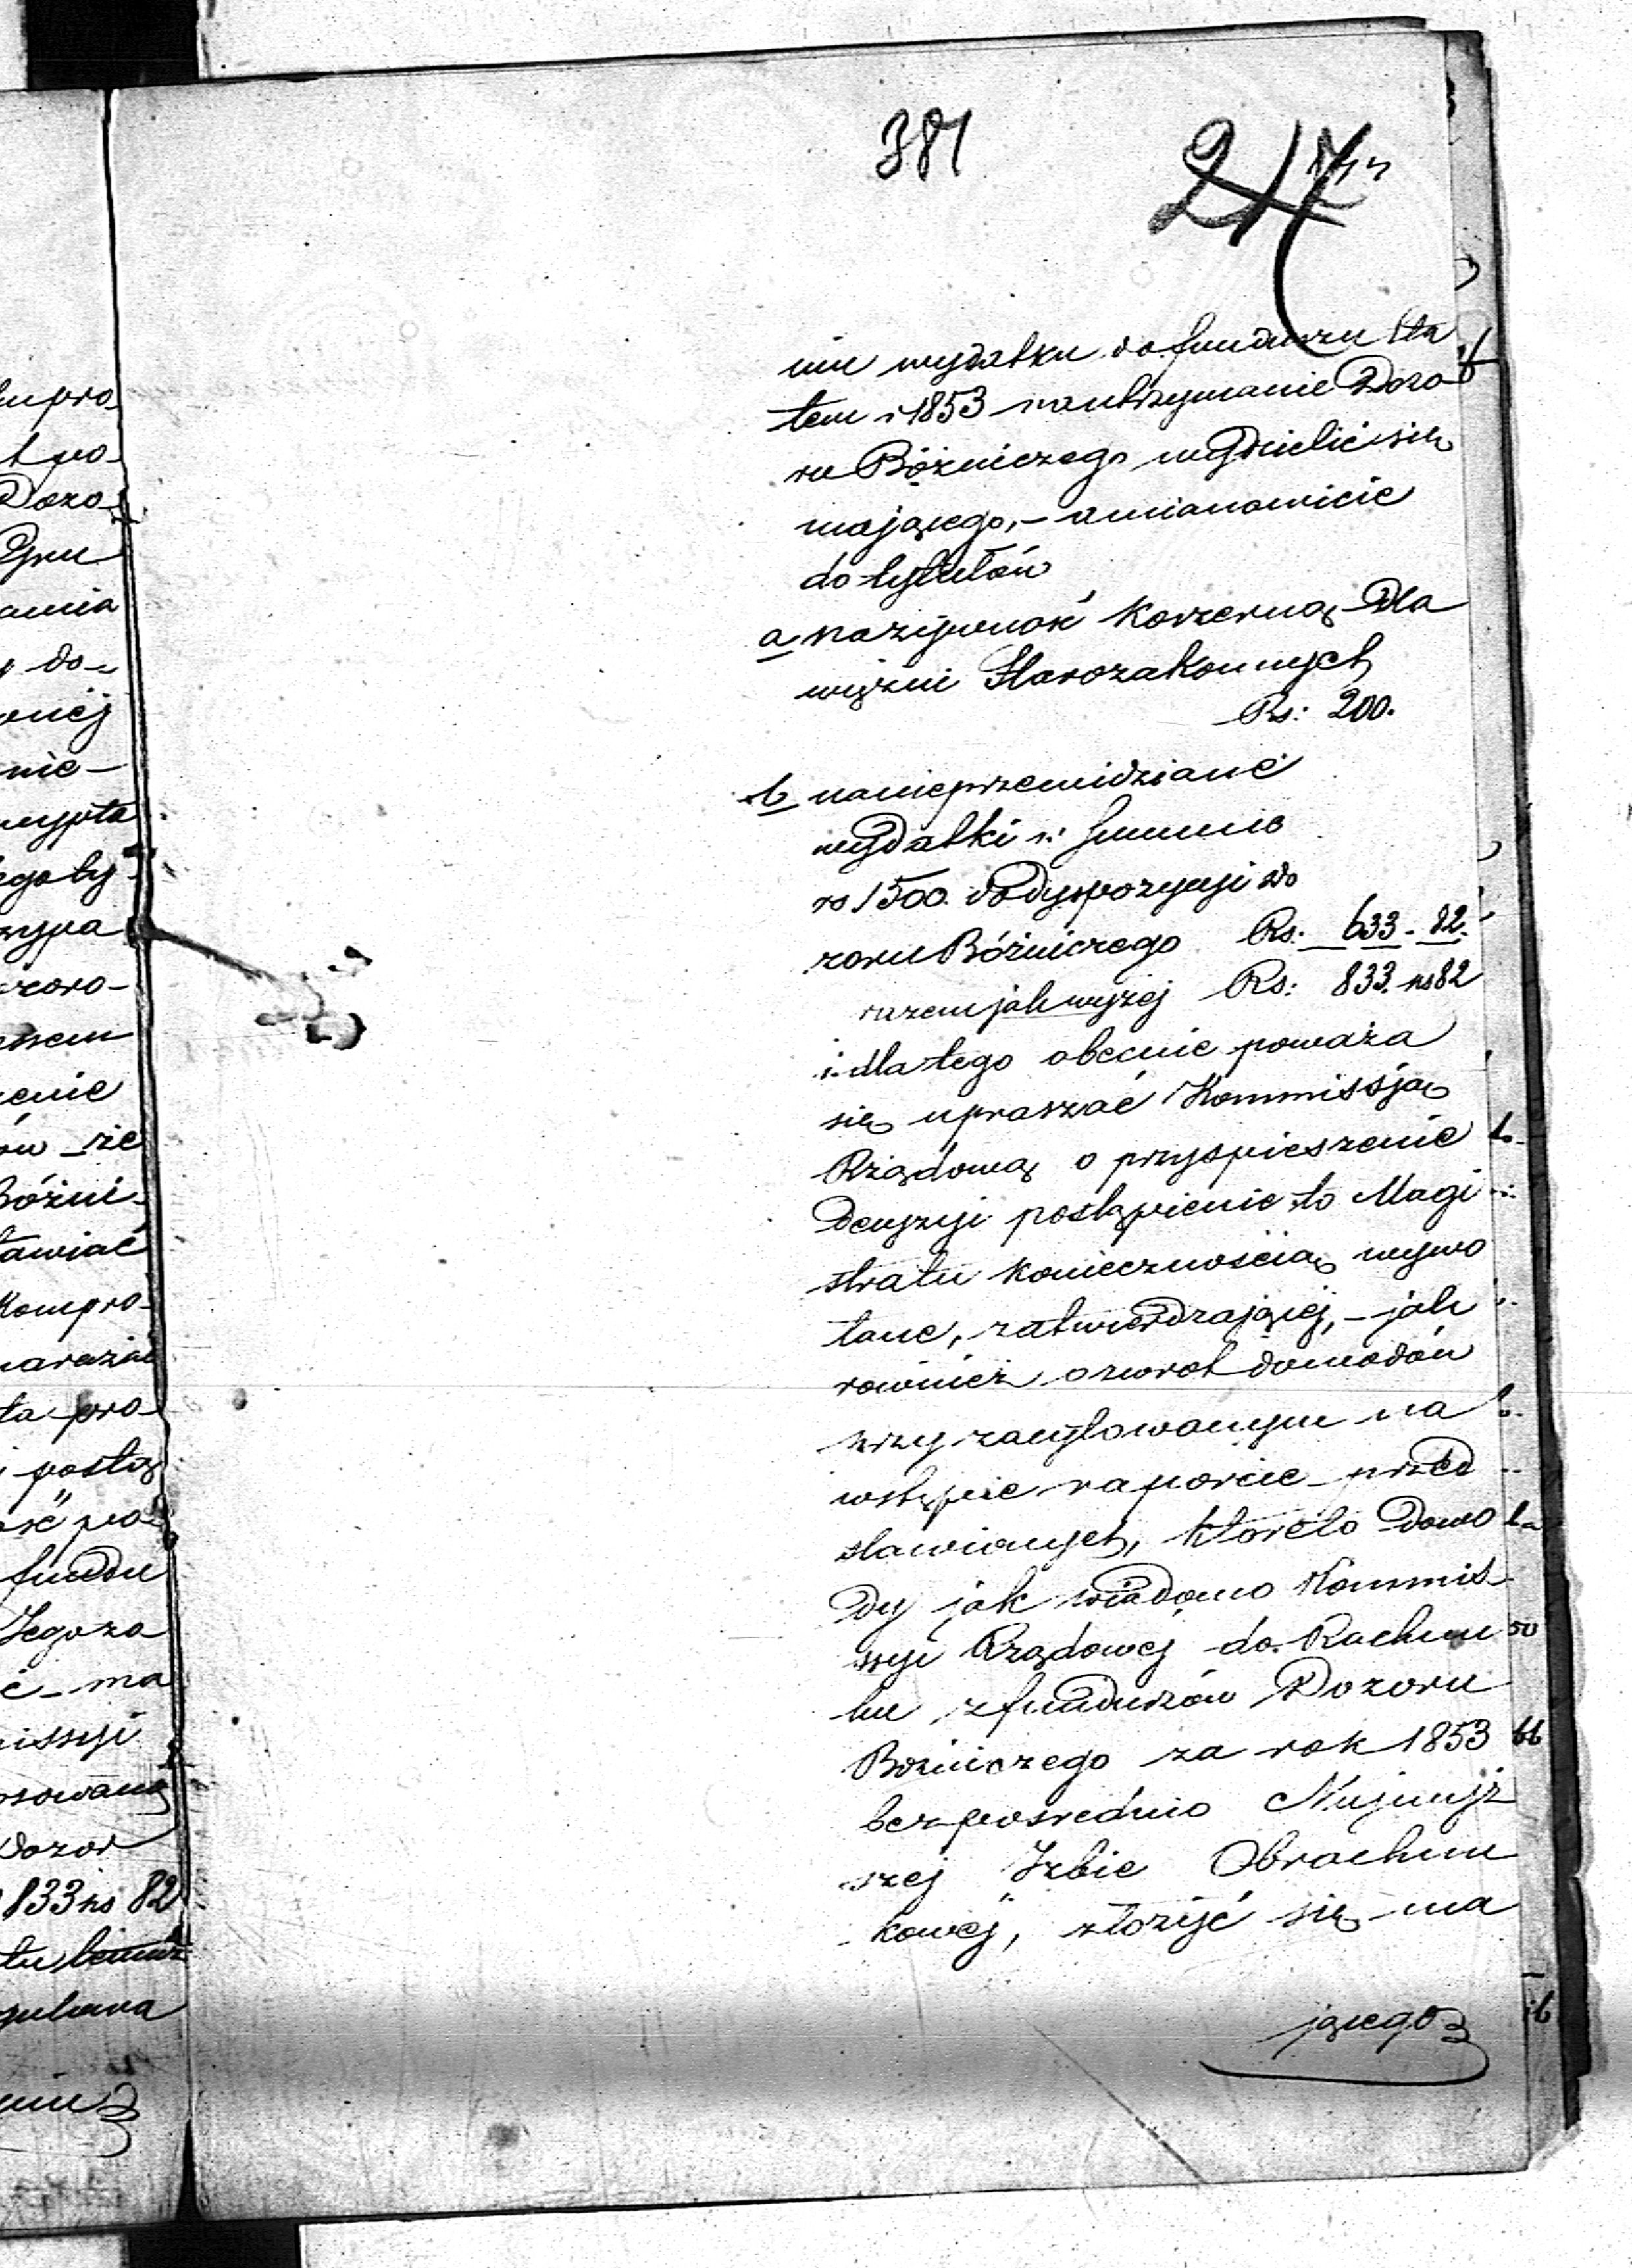 381
217
niu wydatku do funduszu Eta
tem r 1853 na utrzymanie Dozo
ru Bóżniczego wydzielić się
mającego, – a mianowicie
do tytułów
a na żywność koszerną dla
więźni Starozakonnych
Rs: 200.
b na nieprzewidziane
wydatki w Summie
rs 1500. do dyspozycyi Do
zoru Bóżniczego Rs: 633 - 82.
razem jak wyżej Rs: 833. ks 82
i dla tego obecnie poważa
się upraszać Kommissją
Rządową o przyspieszenie
Decyzyi postąpienie to Magi
stratu koniecznością wywo
łane, zatwierdzającej, – jak
rownież o zwrot dowodów
przy zacytowanym na
wstępie raporcie przed
stawionych, któreto Dowo
dy jak wiadomo Kommis
syi Rządowej do Rachun
ku z funduszów Dozoru
Bożniczego za rok 1853
bezpośrednio Najwyż
szej Izbie Obrachun
kowej, złożyć się ma
jącego
mpro
Dozo
do
nie
wypła
zoro
enie
Bóżni
tawiać
Kompro
ta pro
fundu
ma
missyi
Dozor
833 ks 82